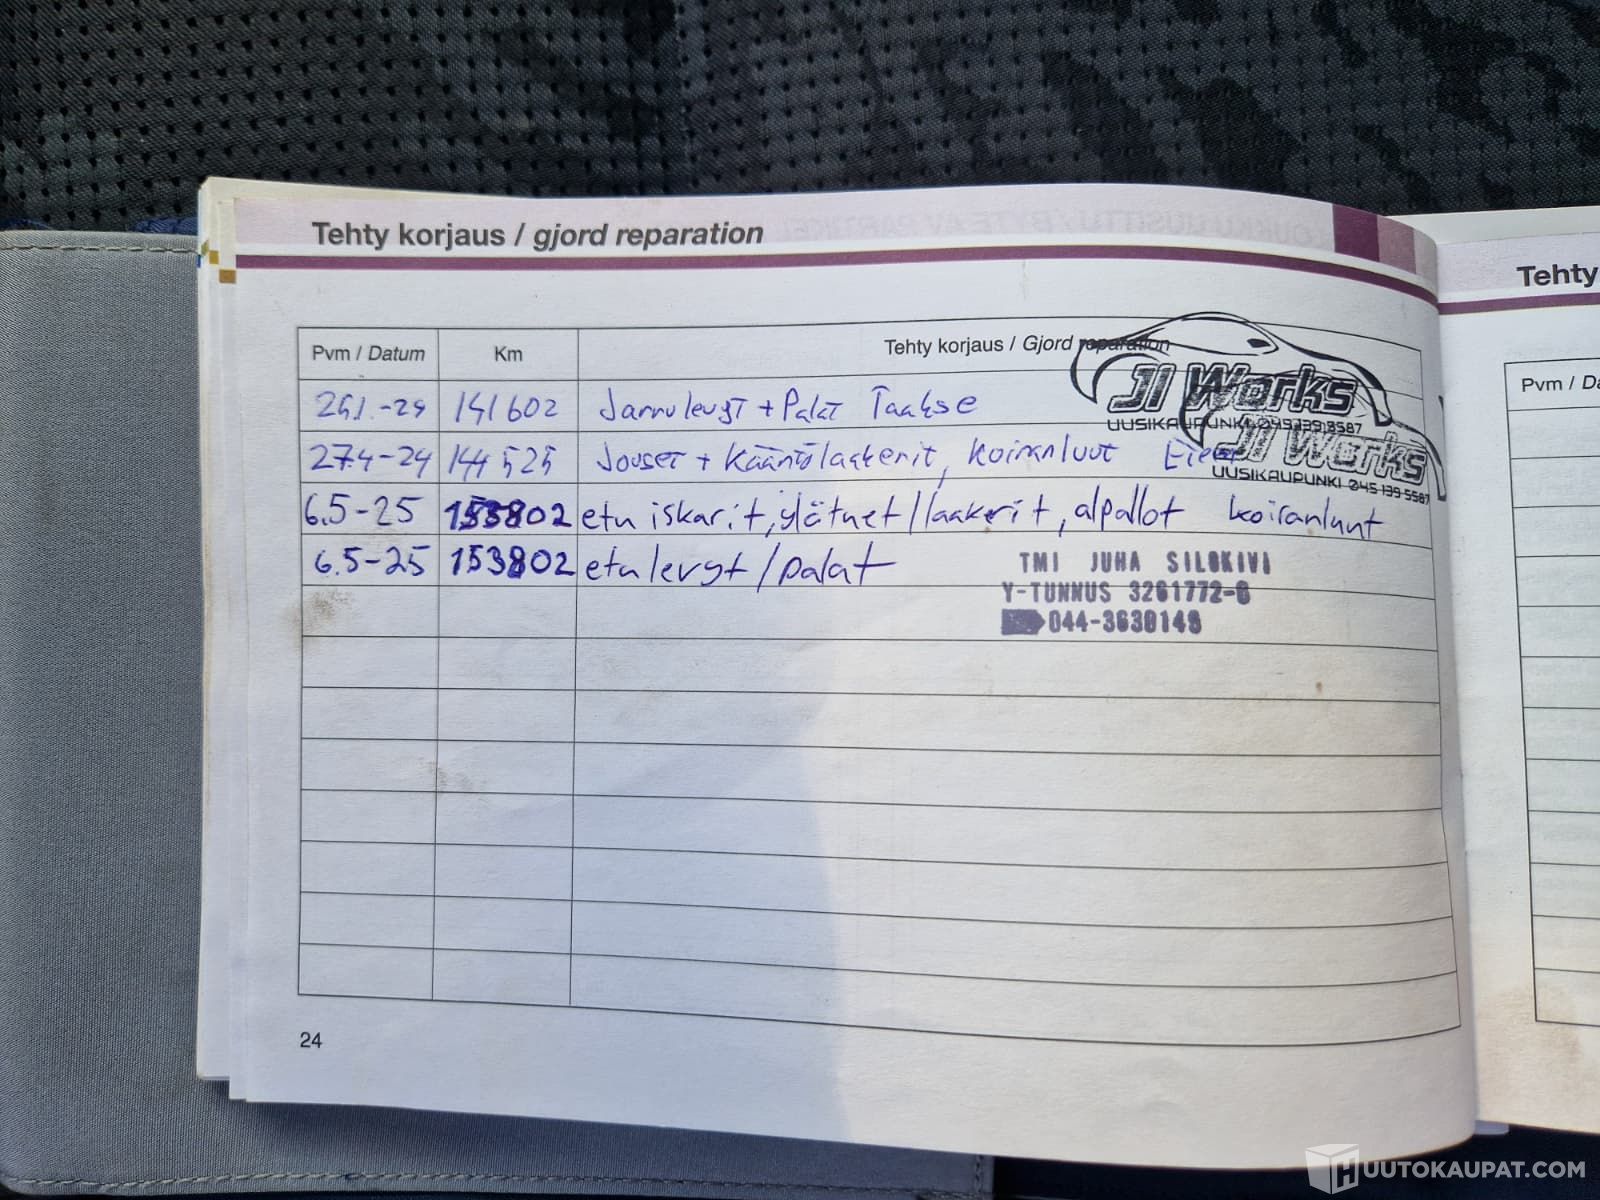 Tehty korjaus / gjord reparation
Tehty
Pvm / Datum Km Tehty korjaus / Gjord reparation
Pvm / Da
JI Works
UUSIKAUPUNKI 045 139 5587
JI Works
UUSIKAUPUNKI 045 139 5587
141602 Jarrulevyt + Palat Taakse
27.4-24 144525 Jouset + kääntölaakerit, koiranluut Eteen
6.5-25 153802 etu iskarit, ylätuet/laakerit, alpallot koiranluut
6.5-25 153802 etulevyt/palat
TMI JUHA SILOKIVI
Y-TUNNUS 3261772-6
044-3630148
24
HUUTOKAUPAT.COM